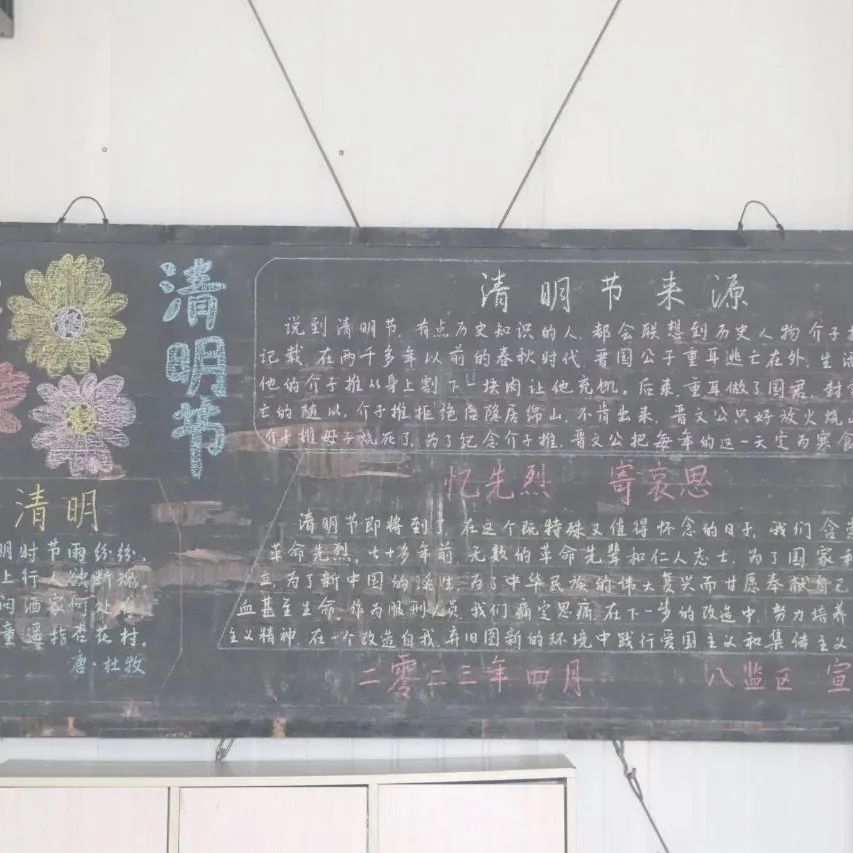 清明节
清明
明时节雨纷纷，
上行人欲断魂。
问酒家何处有
童遥指杏花村。
唐·杜牧
清明节来源
说到清明节，有点历史知识的人，都会联想到历史人物介子推
记载，在两千多年以前的春秋时代，晋国公子重耳逃亡在外，生活
他的介子推从身上割下一块肉让他充饥。后来，重耳做了国君，封
亡的随从，介子推拒绝隐居绵山，不肯出来，晋文公只好放火烧山
介子推母子烧死了，为了纪念介子推，晋文公把每年的这一天定为寒食
忆先烈 寄哀思
清明节即将到了，在这个既特殊又值得怀念的日子，我们含
革命先烈。七十多年前，无数的革命先辈和仁人志士，为了国家
立，为了新中国的诞生，为了中华民族的伟大复兴而甘愿奉献自己
血甚至生命。作为服刑人员，我们痛定思痛，在下一步的改造中，努力培养
主义精神，在一个改造自我，弃旧图新的环境中践行爱国主义和集体主义
二零二三年四月 八监区 宣